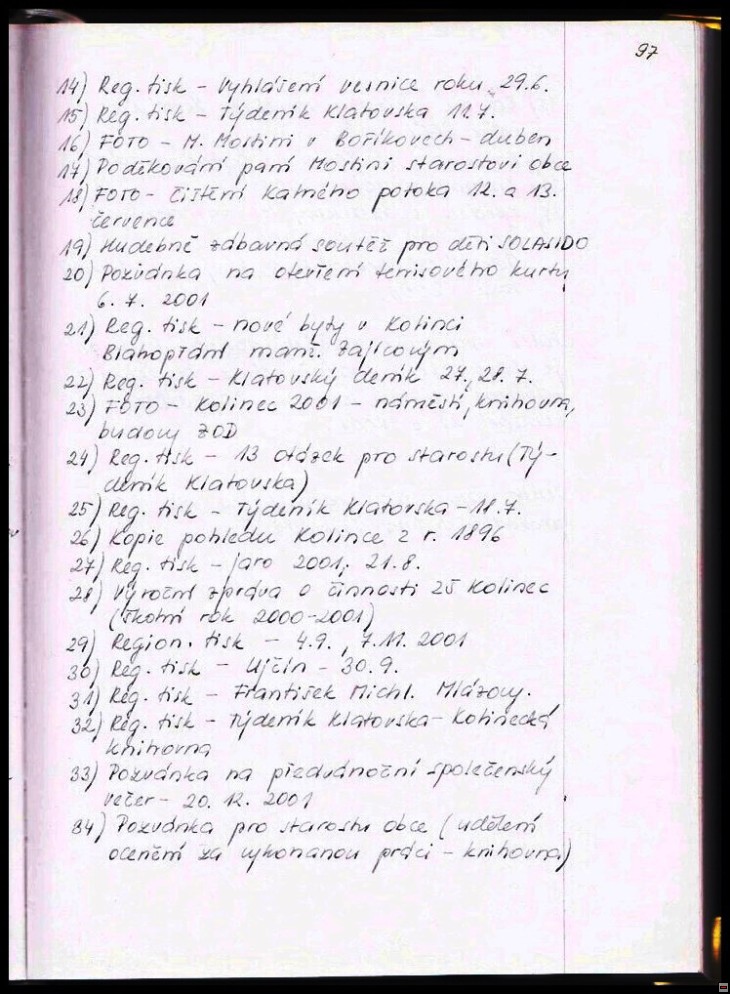 97
14) Reg. tisk - Vyhlášení vesnice roku 29.6.
15) Reg. tisk - Týdeník Klatovska 11.7.
16) FOTO - M. Mostini v Boříkovech - duben
17) Poděkování paní Mostini starostovi obce
18) FOTO - čištění Kalného potoka 12. a 13.
července
19) Hudebně zábavná soutěž pro děti SOLASIDO
20) Pozvánka na otevření tenisového kurtu
6. 7. 2001
21) Reg. tisk - nové byty v Kolinci
Blahopřání manž. Zajícovým
22) Reg. tisk - Klatovský deník 27., 28. 7.
23) FOTO - Kolinec 2001 - náměstí, knihovna,
budovy ZOD
24) Reg. tisk - 13 otázek pro starostu (Tý-
deník Klatovska)
25) Reg. tisk - Týdeník Klatovska - 18.7.
26) Kopie pohledu Kolince z r. 1896
27) Reg. tisk - jaro 2001, 21.8.
28) Výroční zpráva o činnosti ZŠ Kolinec
(školní rok 2000-2001)
29) Region. tisk - 4.9., 7.11. 2001
30) Reg. tisk - Ujčín - 30.9.
31) Reg. tisk - František Michl. Mlázovy.
32) Reg. tisk - Týdeník Klatovska - Kolinecká
knihovna
33) Pozvánka na předvánoční společenský
večer - 20. 12. 2001
34) Pozvánka pro starostu obce (udělení
ocenění za vykonanou práci - knihovna)